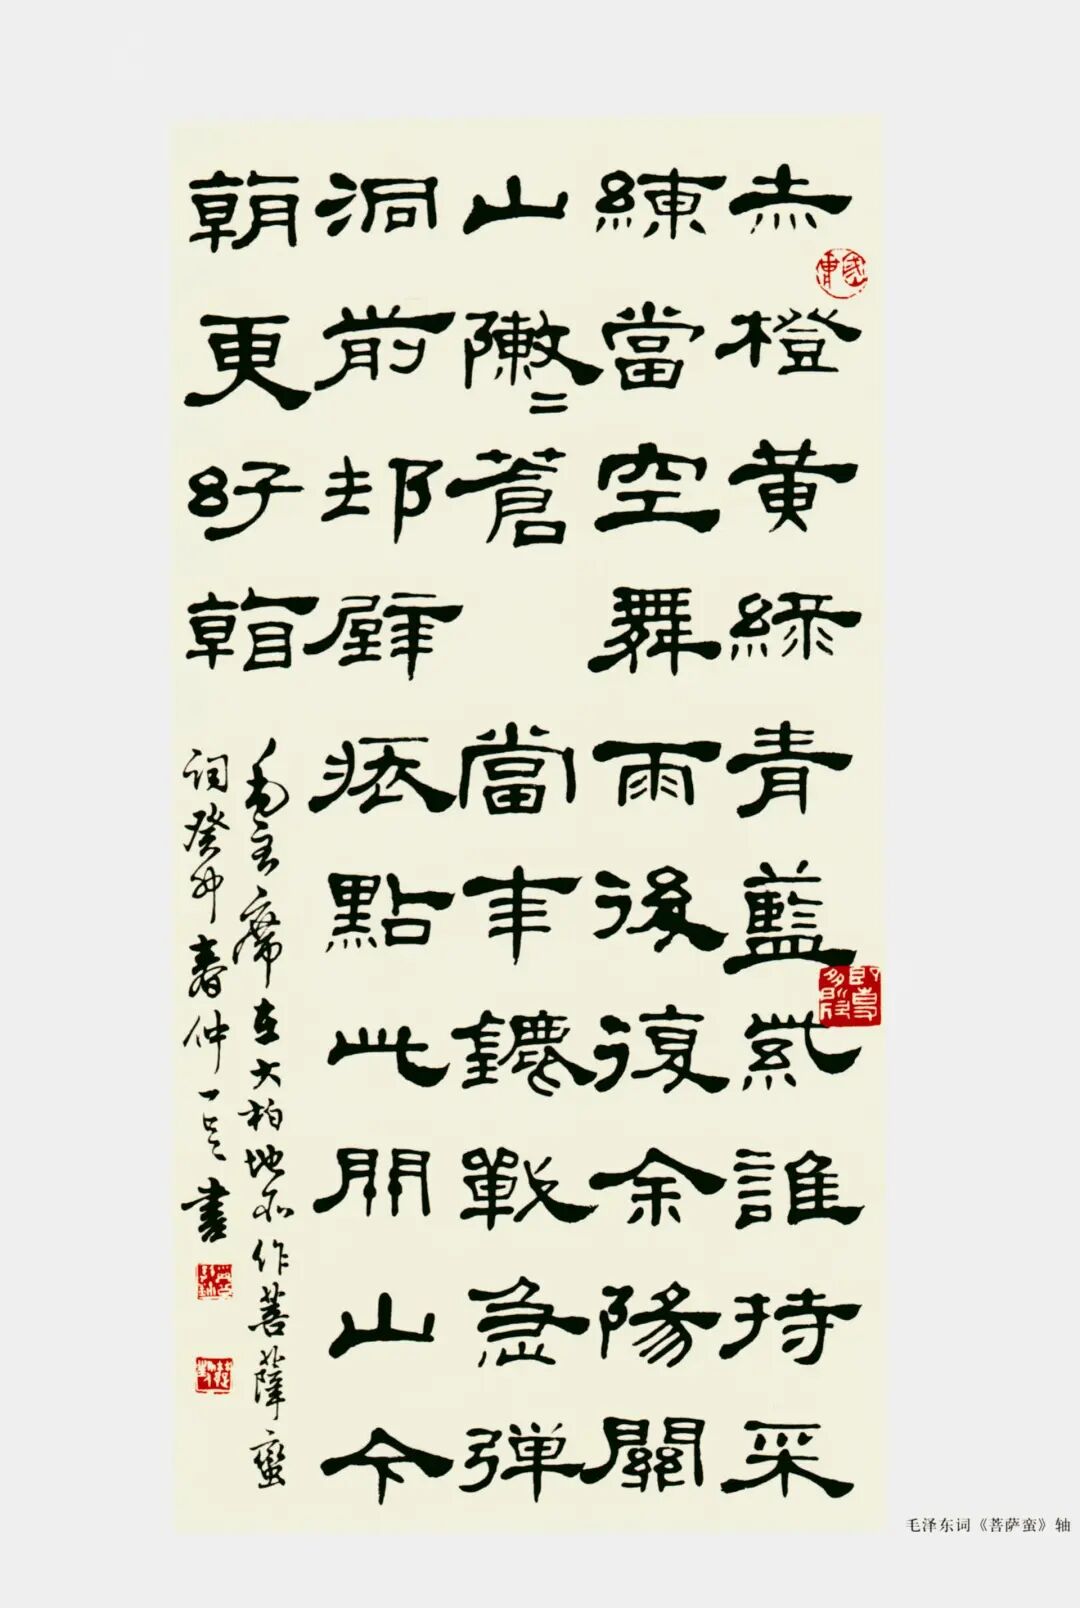 赤橙黄綠青藍紫誰持采
練當空舞雨後復余陽關
山敶〻蒼 當年鏖戰急彈
洞前邨壁裝點此關山今
朝更好看
毛主席在大柏地所作菩薩蠻
詞癸卯春仲一書
毛泽东词《菩萨蛮》轴